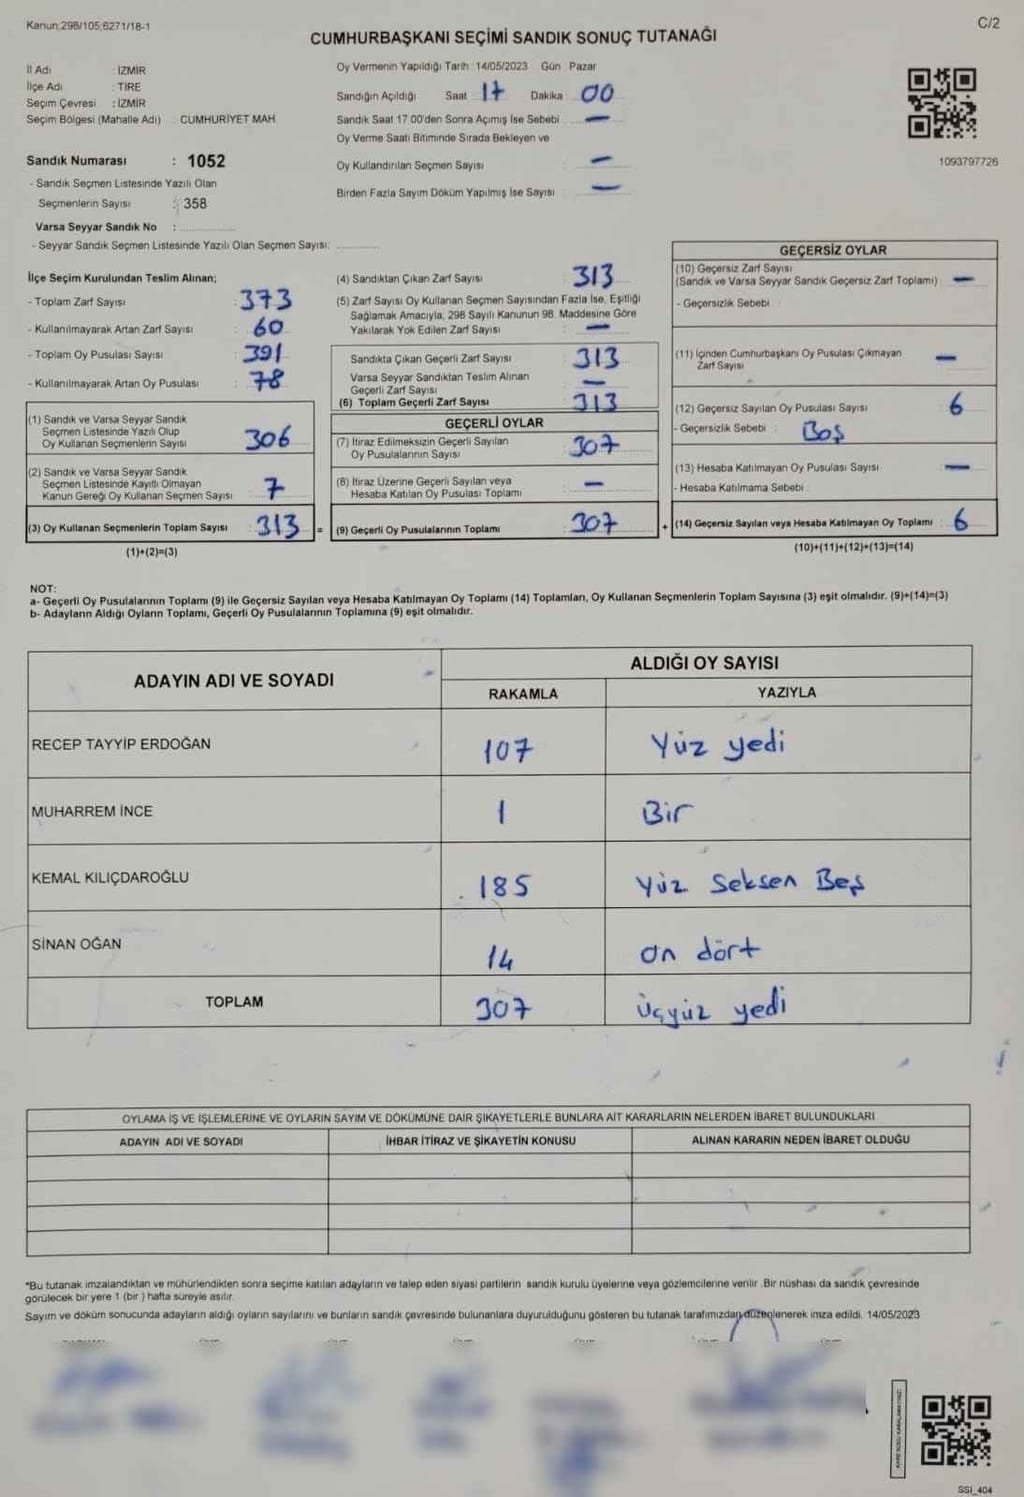 Kanun:298/105;6271/18-1
C/2
CUMHURBAŞKANI SEÇİMİ SANDIK SONUÇ TUTANAĞI
İl Adı : İZMİR
İlçe Adı : TİRE
Seçim Çevresi : İZMİR
Seçim Bölgesi (Mahalle Adı) CUMHURİYET MAH.
Sandık Numarası : 1052
- Sandık Seçmen Listesinde Yazılı Olan
Seçmenlerin Sayısı : 358
Varsa Seyyar Sandık No :
- Seyyar Sandık Seçmen Listesinde Yazılı Olan Seçmen Sayısı:
Oy Vermenin Yapıldığı Tarih : 14/05/2023 Gün Pazar
Sandığın Açıldığı Saat 17 Dakika 00
Sandık Saat 17 00'den Sonra Açımış İse Sebebi —
Oy Verme Saati Bitiminde Sırada Bekleyen ve
Oy Kullandırılan Seçmen Sayısı : —
Birden Fazla Sayım Döküm Yapılmış İse Sayısı : —
1093797726
İlçe Seçim Kurulundan Teslim Alınan;
- Toplam Zarf Sayısı : 373
- Kullanılmayarak Artan Zarf Sayısı : 60
- Toplam Oy Pusulası Sayısı : 391
- Kullanılmayarak Artan Oy Pusulası : 78
(1) Sandık ve Varsa Seyyar Sandık
Seçmen Listesinde Yazılı Olup
Oy Kullanan Seçmenlerin Sayısı : 306
(2) Sandık ve Varsa Seyyar Sandık
Seçmen Listesinde Kayıtlı Olmayan
Kanun Gereği Oy Kullanan Seçmen Sayısı : 7
(3) Oy Kullanan Seçmenlerin Toplam Sayısı : 313 =
(1)+(2)=(3)
(4) Sandıktan Çıkan Zarf Sayısı : 313
(5) Zarf Sayısı Oy Kullanan Seçmen Sayısından Fazla İse, Eşitliği
Sağlamak Amacıyla, 298 Sayılı Kanunun 98. Maddesine Göre
Yakılarak Yok Edilen Zarf Sayısı : —
Sandıkta Çıkan Geçerli Zarf Sayısı : 313
Varsa Seyyar Sandıktan Teslim Alınan
Geçerli Zarf Sayısı : —
(6) Toplam Geçerli Zarf Sayısı : 313
GEÇERLİ OYLAR
(7) İtiraz Edilmeksizin Geçerli Sayılan
Oy Pusulalarının Sayısı : 307
(8) İtiraz Üzerine Geçerli Sayılan veya
Hesaba Katılan Oy Pusulası Toplamı : —
(9) Geçerli Oy Pusulalarının Toplamı : 307 +
GEÇERSİZ OYLAR
(10) Geçersiz Zarf Sayısı
(Sandık ve Varsa Seyyar Sandık Geçersiz Zarf Toplamı) : —
- Geçersizlik Sebebi :
(11) İçinden Cumhurbaşkanı Oy Pusulası Çıkmayan
Zarf Sayısı : —
(12) Geçersiz Sayılan Oy Pusulası Sayısı : 6
- Geçersizlik Sebebi : Boş
(13) Hesaba Katılmayan Oy Pusulası Sayısı : —
- Hesaba Katılmama Sebebi :
(14) Geçersiz Sayılan veya Hesaba Katılmayan Oy Toplamı : 6
(10)+(11)+(12)+(13)=(14)
NOT:
a- Geçerli Oy Pusulalarının Toplamı (9) ile Geçersiz Sayılan veya Hesaba Katılmayan Oy Toplamı (14) Toplamları, Oy Kullanan Seçmenlerin Toplam Sayısına (3) eşit olmalıdır. (9)+(14)=(3)
b- Adayların Aldığı Oyların Toplamı, Geçerli Oy Pusulalarının Toplamına (9) eşit olmalıdır.
ADAYIN ADI VE SOYADI
ALDIĞI OY SAYISI
RAKAMLA YAZIYLA
RECEP TAYYİP ERDOĞAN 107 Yüz yedi
MUHARREM İNCE 1 Bir
KEMAL KILIÇDAROĞLU 185 Yüz Seksen Beş
SİNAN OĞAN 14 on dört
TOPLAM 307 Üçyüz yedi
OYLAMA İŞ VE İŞLEMLERİNE VE OYLARIN SAYIM VE DÖKÜMÜNE DAİR ŞİKAYETLERLE BUNLARA AİT KARARLARIN NELERDEN İBARET BULUNDUKLARI
ADAYIN ADI VE SOYADI İHBAR İTİRAZ VE ŞİKAYETİN KONUSU ALINAN KARARIN NEDEN İBARET OLDUĞU
*Bu tutanak imzalandıktan ve mühürlendikten sonra seçime katılan adayların ve talep eden siyasi partilerin sandık kurulu üyelerine veya gözlemcilerine verilir. Bir nüshası da sandık çevresinde
görülecek bir yere 1 (bir) hafta süreyle asılır.
Sayım ve döküm sonucunda adayların aldığı oyların sayılarını ve bunların sandık çevresinde bulunanlara duyurulduğunu gösteren bu tutanak tarafımızdan düzenlenerek imza edildi. 14/05/2023
SSI_404